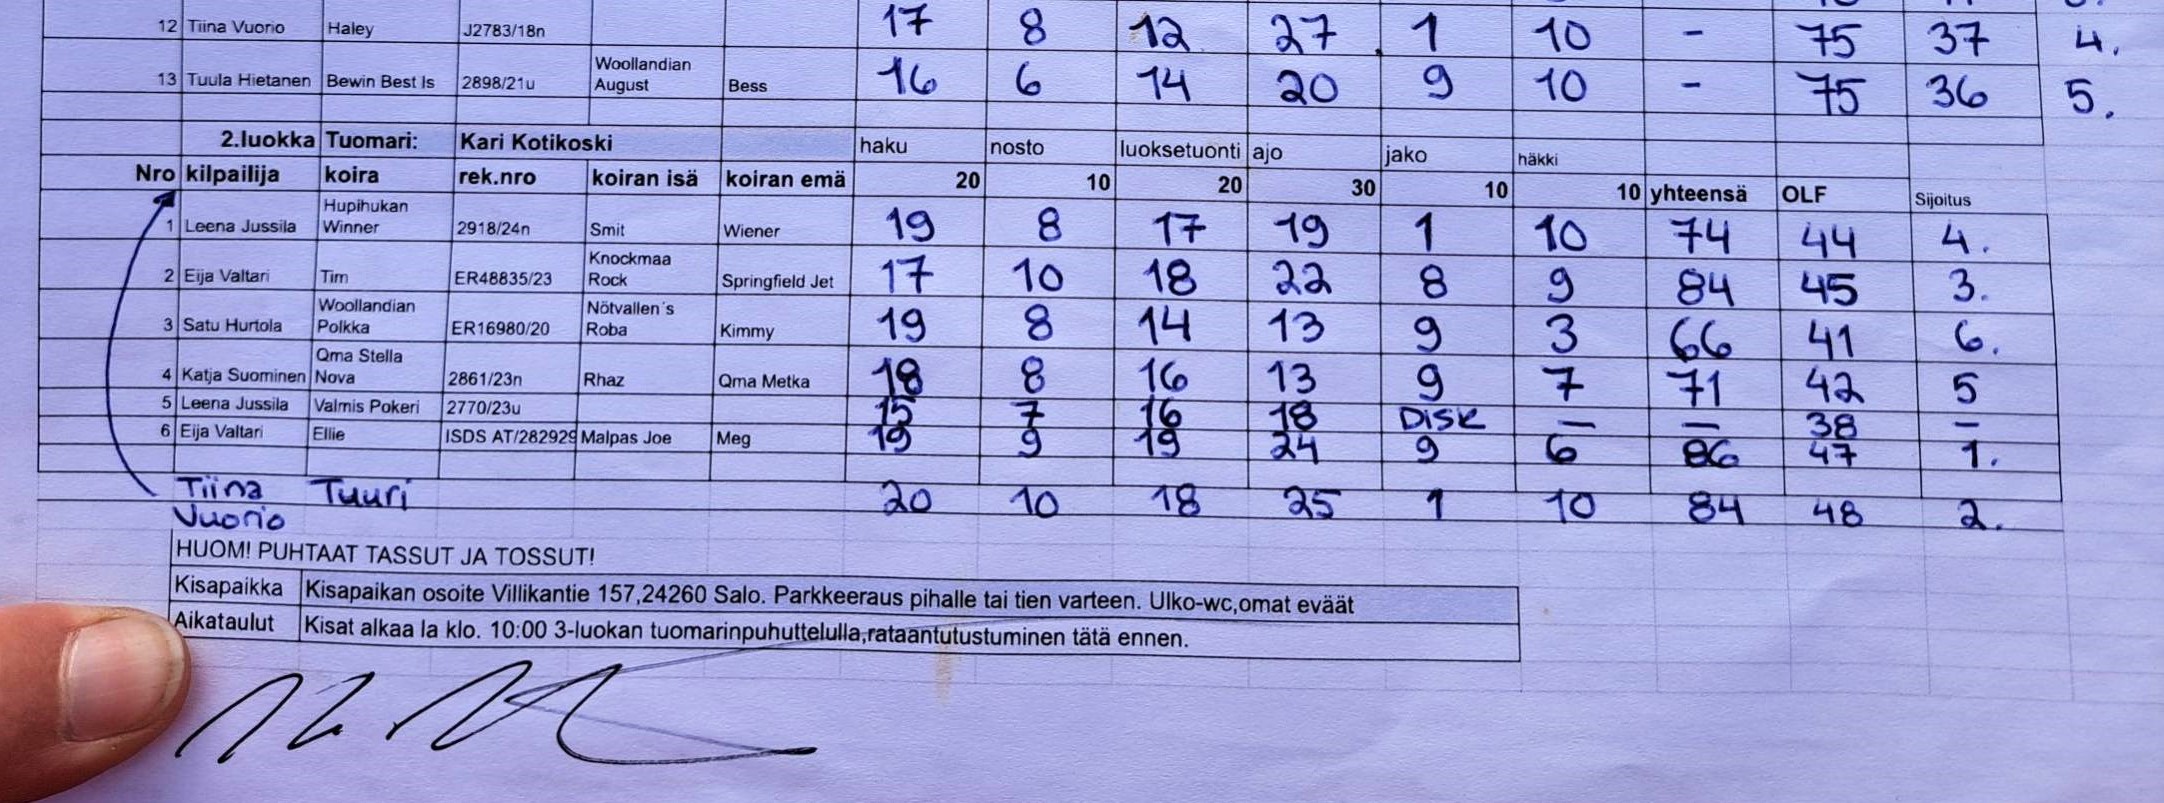 12 Tiina Vuorio Haley J2783/18n 17 8 12 27 1 10 - 75 37 4.
13 Tuula Hietanen Bewin Best Is 2898/21u Woollandian August Bess 16 6 14 20 9 10 - 75 36 5.
2.luokka Tuomari: Kari Kotikoski haku nosto luoksetuonti ajo jako häkki
Nro kilpailija koira rek.nro koiran isä koiran emä 20 10 20 30 10 10 yhteensä OLF Sijoitus
1 Leena Jussila Hupihukan Winner 2918/24n Smit Wiener 19 8 17 19 1 10 74 44 4.
2 Eija Valtari Tim ER48835/23 Knockmaa Rock Springfield Jet 17 10 18 22 8 9 84 45 3.
3 Satu Hurtola Woollandian Polkka ER16980/20 Nötvallen´s Roba Kimmy 19 8 14 13 9 3 66 41 6.
4 Katja Suominen Qma Stella Nova 2861/23n Rhaz Qma Metka 18 8 16 13 9 7 71 42 5
5 Leena Jussila Valmis Pokeri 2770/23u 15 7 16 18 DISK — — 38 —
6 Eija Valtari Ellie ISDS AT/282929 Malpas Joe Meg 19 9 19 24 9 6 86 47 1.
Tiina Vuorio Tuuri 20 10 18 25 1 10 84 48 2.
HUOM! PUHTAAT TASSUT JA TOSSUT!
Kisapaikka Kisapaikan osoite Villikantie 157,24260 Salo. Parkkeeraus pihalle tai tien varteen. Ulko-wc,omat eväät
Aikataulut Kisat alkaa la klo. 10:00 3-luokan tuomarinpuhuttelulla,rataantutustuminen tätä ennen.